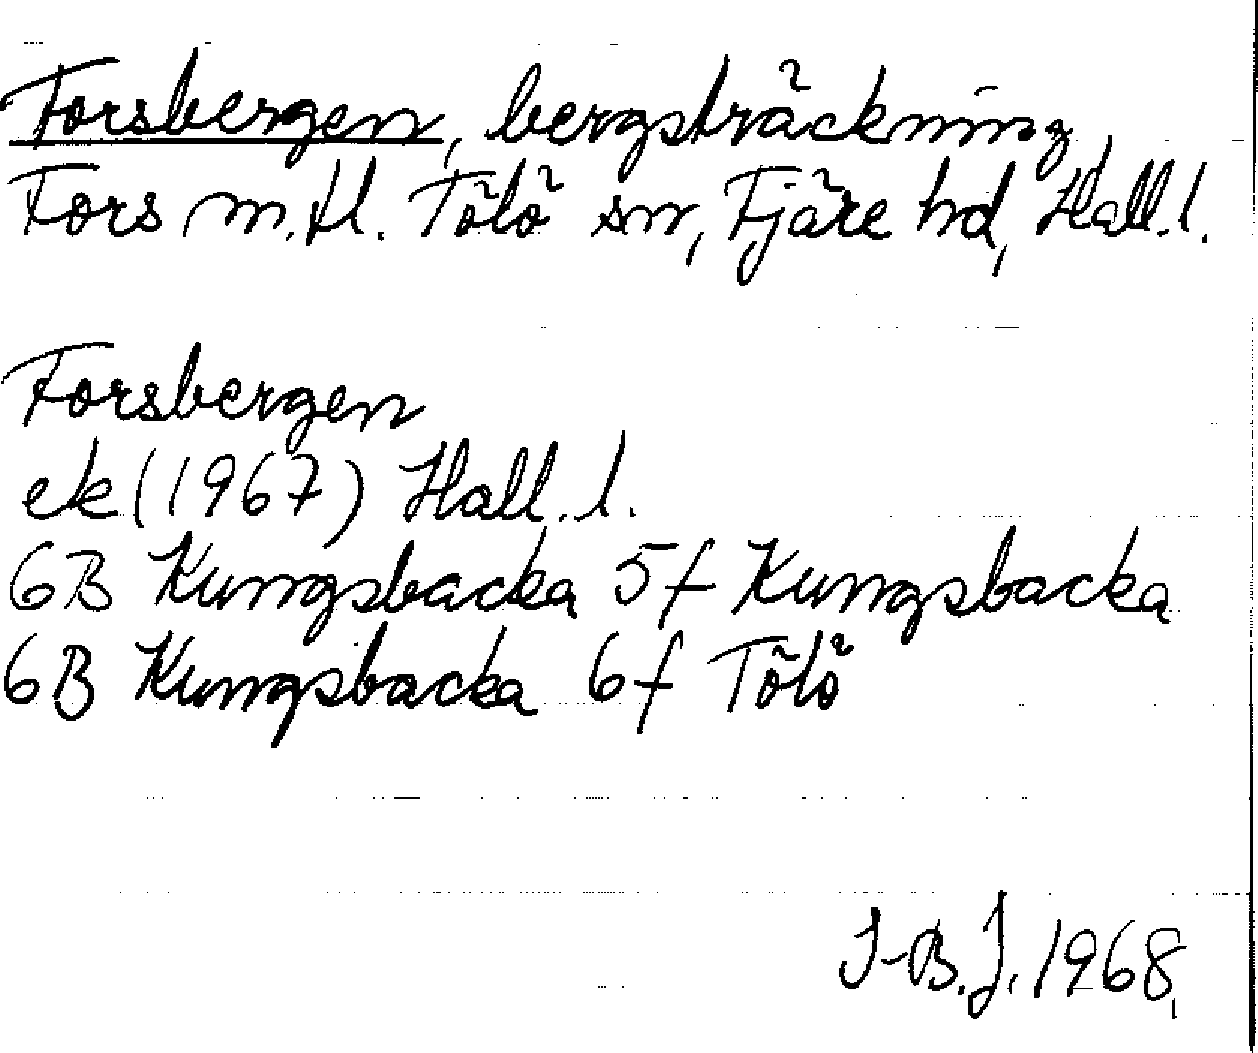 Forsbergen, bergsträckning
Fors m.fl. Tölö sn, Fjäre hd, Hall.l.
Forsbergen
ek (1967) Hall.l.
6B Kungsbacka 5f Kungsbacka
6B Kungsbacka 6f Tölö
I-B.J. 1968